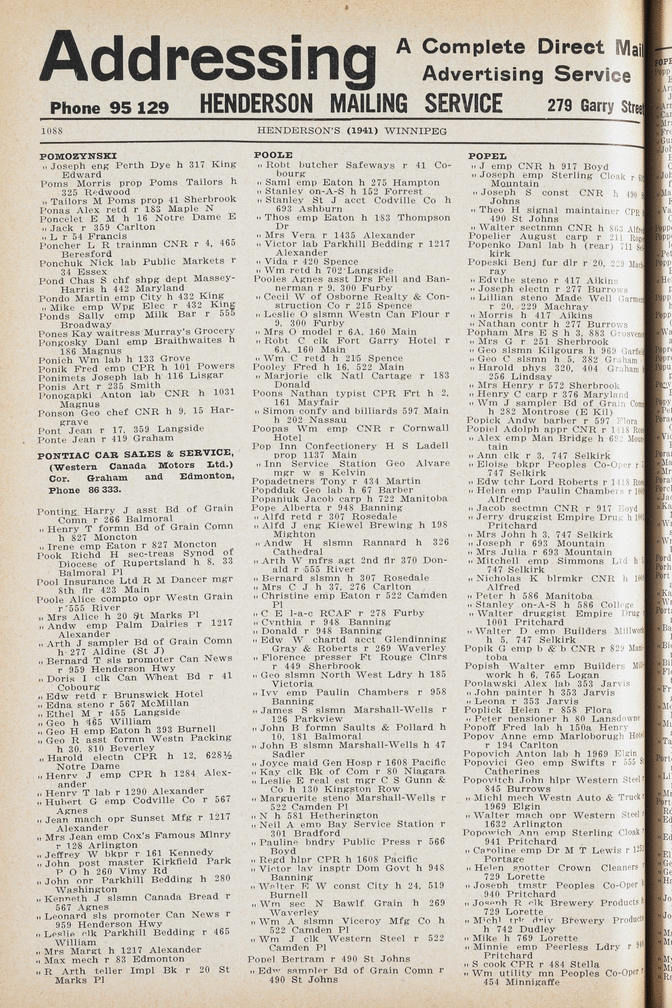 Addressing
A Complete Direct Mail
Advertising Service
Phone 95 129 HENDERSON MAILING SERVICE 279 Garry Street
1088 HENDERSON'S (1941) WINNIPEG
POMOZYNSKI
" Joseph eng Perth Dye h 317 King
Edward
Poms Morris prop Poms Tailors h
325 Redwood
" Tailors M Poms prop 41 Sherbrook
Ponas Alex retd r 183 Maple N
Poncelet E M h 16 Notre Dame E
" Jack r 359 Carlton
" L r 54 Francis
Poncher L R trainmn CNR r 4, 465
Beresford
Ponchuk Nick lab Public Markets r
34 Essex
Pond Chas S chf shpg dept Massey-
Harris h 442 Maryland
Pondo Martin emp City h 432 King
" Mike emp Wpg Elec r 432 King
Ponds Sally emp Milk Bar r 555
Broadway
Pones Kay waitress Murray's Grocery
Pongosky Danl emp Braithwaites h
186 Magnus
Ponich Wm lab h 133 Grove
Ponik Fred emp CPR h 101 Powers
Ponimets Joseph lab h 116 Lisgar
Ponis Art r 235 Smith
Ponogapki Anton lab CNR h 1031
Magnus
Ponson Geo chef CNR h 9, 15 Har-
grave
Pont Jean r 17, 359 Langside
Ponte Jean r 419 Graham
PONTIAC CAR SALES & SERVICE,
(Western Canada Motors Ltd.)
Cor. Graham and Edmonton,
Phone 86 333.
Ponting Harry J asst Bd of Grain
Comn r 266 Balmoral
" Henry T formn Bd of Grain Comn
h 827 Moncton
" Irene emp Eaton r 827 Moncton
Pook Richd H sec-treas Synod of
Diocese of Rupertsland h 8, 33
Balmoral Pl
Pool Insurance Ltd R M Dancer mgr
8th flr 423 Main
Poole Alice compto opr Westn Grain
r 555 River
" Mrs Alice h 20 St Marks Pl
" Andw emp Palm Dairies r 1217
Alexander
" Arth J sampler Bd of Grain Comn
h 277 Aldine (St J)
" Bernard T sls promoter Can News
r 959 Henderson Hwy
" Doris I clk Can Wheat Bd r 41
Cobourg
" Edw retd r Brunswick Hotel
" Edna steno r 567 McMillan
" Ethel M r 455 Langside
" Geo h 465 William
" Geo H emp Eaton h 393 Burnell
" Geo R asst formn Westn Packing
h 30, 810 Beverley
" Harold electn CPR h 12, 628½
Notre Dame
" Henry J emp CPR h 1284 Alex-
ander
" Henry T lab r 1290 Alexander
" Hubert G emp Codville Co r 567
Agnes
" Jean mach opr Sunset Mfg r 1217
Alexander
" Mrs Jean emp Cox's Famous Mlnry
r 128 Arlington
" Jeffrey W bkpr r 161 Kennedy
" John post master Kirkfield Park
P O h 260 Vimy Rd
" John opr Parkhill Bedding h 280
Washington
" Kenneth J slsmn Canada Bread r
567 Agnes
" Leonard sls promoter Can News r
959 Henderson Hwy
" Leslie clk Parkhill Bedding r 465
William
" Mrs Margt h 1217 Alexander
" Max mech r 83 Edmonton
" R Arth teller Impl Bk r 20 St
Marks Pl
POOLE
" Robt butcher Safeways r 41 Co-
bourg
" Saml emp Eaton h 275 Hampton
" Stanley on-A-S h 152 Forrest
" Stanley St J acct Codville Co h
693 Ashburn
" Thos emp Eaton h 183 Thompson
Dr
" Mrs Vera r 1435 Alexander
" Victor lab Parkhill Bedding r 1217
Alexander
" Vida r 420 Spence
" Wm retd h 702 Langside
Pooles Agnes asst Drs Fell and Ban-
nerman r 9, 300 Furby
" Cecil W of Osborne Realty & Con-
struction Co r 215 Spence
" Leslie O slsmn Westn Can Flour r
9, 300 Furby
" Mrs O model r 6A, 160 Main
" Robt C clk Fort Garry Hotel r
6A, 160 Main
" Wm C retd h 215 Spence
Pooley Fred h 16, 522 Main
" Marjorie clk Natl Cartage r 183
Donald
Poons Nathan typist CPR Frt h 2,
161 Mayfair
" Simon confy and billiards 597 Main
h 202 Nassau
Poopas Wm emp CNR r Cornwall
Hotel
Pop Inn Confectionery H S Ladell
prop 1137 Main
" Inn Service Station Geo Alvare
mgr w s Kelvin
Popadetners Tony r 434 Martin
Popdduk Geo lab h 67 Barber
Popaniuk Jacob carp h 722 Manitoba
Pope Alberta r 948 Banning
" Alfd retd r 307 Rosedale
" Alfd J eng Kiewel Brewing h 198
Mighton
" Andw H slsmn Rannard h 326
Cathedral
" Arth W mfrs agt 2nd flr 370 Don-
ald r 555 River
" Bernard slsmn h 307 Rosedale
" Mrs C J h 37, 276 Carlton
" Christine emp Eaton r 522 Camden
Pl
" C E l-a-c RCAF r 278 Furby
" Cynthia r 948 Banning
" Donald r 948 Banning
" Edw W chartd acct Glendinning
Gray & Roberts r 269 Waverley
" Florence presser Ft Rouge Clnrs
r 449 Sherbrook
" Geo slsmn North West Ldry h 185
Victoria
" Ivy emp Paulin Chambers r 958
Banning
" James S slsmn Marshall-Wells r
126 Parkview
" John B formn Saults & Pollard h
10, 181 Balmoral
" John B slsmn Marshall-Wells h 47
Sadler
" Joyce maid Gen Hosp r 1608 Pacific
" Kay clk Bk of Com r 80 Niagara
" Leslie E real est mgr C S Gunn &
Co h 130 Kingston Row
" Marguerite steno Marshall-Wells r
522 Camden Pl
" N h 581 Hetherington
" Neil A emp Bay Service Station r
301 Bradford
" Pauline bndry Public Press r 566
Boyd
" Regd hlpr CPR h 1608 Pacific
" Victor lay insptr Dom Govt h 948
Banning
" Walter E W const City h 24, 519
Burnell
" Wm sec N Bawlf Grain h 269
Waverley
" Wm A slsmn Viceroy Mfg Co h
522 Camden Pl
" Wm J clk Western Steel r 522
Camden Pl
Popel Bertram r 490 St Johns
" Edw sampler Bd of Grain Comn r
490 St Johns
POPEL
" J emp CNR h 917 Boyd
" Joseph emp Sterling Cloak r
Mountain
" Joseph S const CNR h 490 S
Johns
" Theo H signal maintainer CPR
490 St Johns
" Walter sectnmn CNR h 863 Alfre
Popelier August carp r 211
Popenko Danl lab h (rear) 711
kirk
Popeski Benj fur dlr r 20, 229 Mach
ray
" Edythe steno r 417 Aikins
" Joseph electn r 277 Burrows
" Lillian steno Made Well Garmen
r 20, 229 Machray
" Morris h 417 Aikins
" Nathan contr h 277 Burrows
Popham Mrs E S h 3, 883 Grosveno
" Mrs G r 251 Sherbrook
" Geo slsmn Kilgours h 969 Garfi
" Geo C slsmn h 5, 382 Graham
" Harold phys 320, 404 Graham
256 Lindsay
" Mrs Henry r 572 Sherbrook
" Henry C carp r 276 Maryland
" Wm J sampler Bd of Grain Com
h 282 Montrose (E Kil)
Popick Andw barber r 597 Flora
Popiel Adolph appr CNR r 1418 Ros
" Alex emp Man Bridge h 692 Moun
tain
" Ann clk r 3, 747 Selkirk
" Eloise bkpr Peoples Co-Oper r
747 Selkirk
" Edw tchr Lord Roberts r 1418 Ros
" Helen emp Paulin Chambers r
Alfred
" Jacob sectmn CNR r 917 Boyd
" Jerry druggist Empire Drug h
Pritchard
" Mrs John h 3, 747 Selkirk
" Joseph r 693 Mountain
" Mrs Julia r 693 Mountain
" Mitchell emp Simmons Ltd h
747 Selkirk
" Nicholas K blrmkr CNR h
Alfred
" Peter h 586 Manitoba
" Stanley on-A-S h 586 College
" Walter druggist Empire Drug
1001 Pritchard
" Walter D emp Builders Millwor
h 5, 747 Selkirk
Popik G emp b & b CNR r 829 Mani
toba
Popish Walter emp Builders Mill
work h 6, 765 Logan
Poplawski Alex lab 353 Jarvis
" John painter h 353 Jarvis
" Leona r 353 Jarvis
Poplick Helen r 858 Flora
" Peter pensioner h 80 Lansdowne
Popoff Fred lab h 150a Henry
Popoy Anne emp Marlborough Hote
r 194 Carlton
Popovich Anton lab h 1969 Elgin
Popovici Geo emp Swifts r 555 S
Catherines
Popovitch John hlpr Western Steel
845 Burrows
" Michl mech Westn Auto & Truck
1969 Elgin
" Walter mach opr Western Steel
1632 Arlington
Popowich Ann emp Sterling Cloak
941 Pritchard
" Caroline emp Dr M T Lewis r
Portage
" Helen spotter Crown Cleaners
729 Lorette
" Joseph tmstr Peoples Co-Oper
940 Pritchard
" Joseph R clk Brewery Products
729 Lorette
" Michl trk driv Brewery Product
h 742 Dudley
" Mike h 769 Lorette
" Minnie emp Peerless Ldry r
Pritchard
" S cook CPR r 484 Stella
" Wm utility mn Peoples Co-Oper
454 Minnigaffe